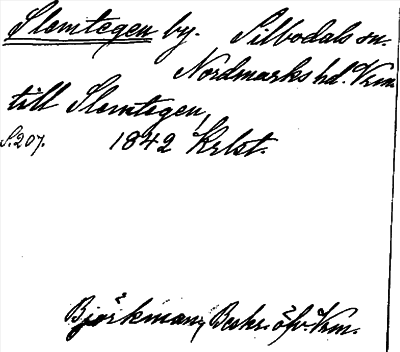 Slemtegen by. Silbodals sn.
Nordmarks hd. Vrm.
till Slemtegen,
S. 207. 1842 Krlst.
Björkman, Beskr. öfv. Vrm.